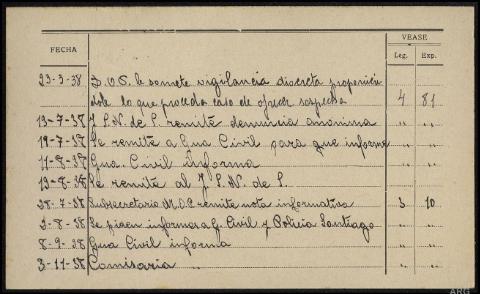 FECHA VEASE
Leg. Exp.
23-3-38 D.O.S. le somete vigilancia discreta proponién
dole lo que proceda caso de ofrecer sospecha 4 81
13-7-38 J.S.N. de S. remite denuncia anonima " "
19-7-38 Se remite a Gua Civil para que informe " "
11-8-38 Gua. Civil informa " "
19-8-38 Se remite al J.S.N. de S. " "
28-7-38 Subsecretario M.O.P. remite nota informativa 3 10
2-8-38 Se piden informes a G. Civil y Policia Santiago " "
8-9-38 Gua Civil informa " "
3-11-38 Comisaria " " "
ARG